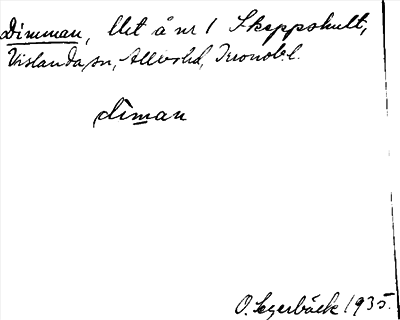 Dimman, llet å nr 1 Skeppshult,
Vislanda sn, Allbo hd, Kronob. l.
diman
O. Segerbäck 1935.